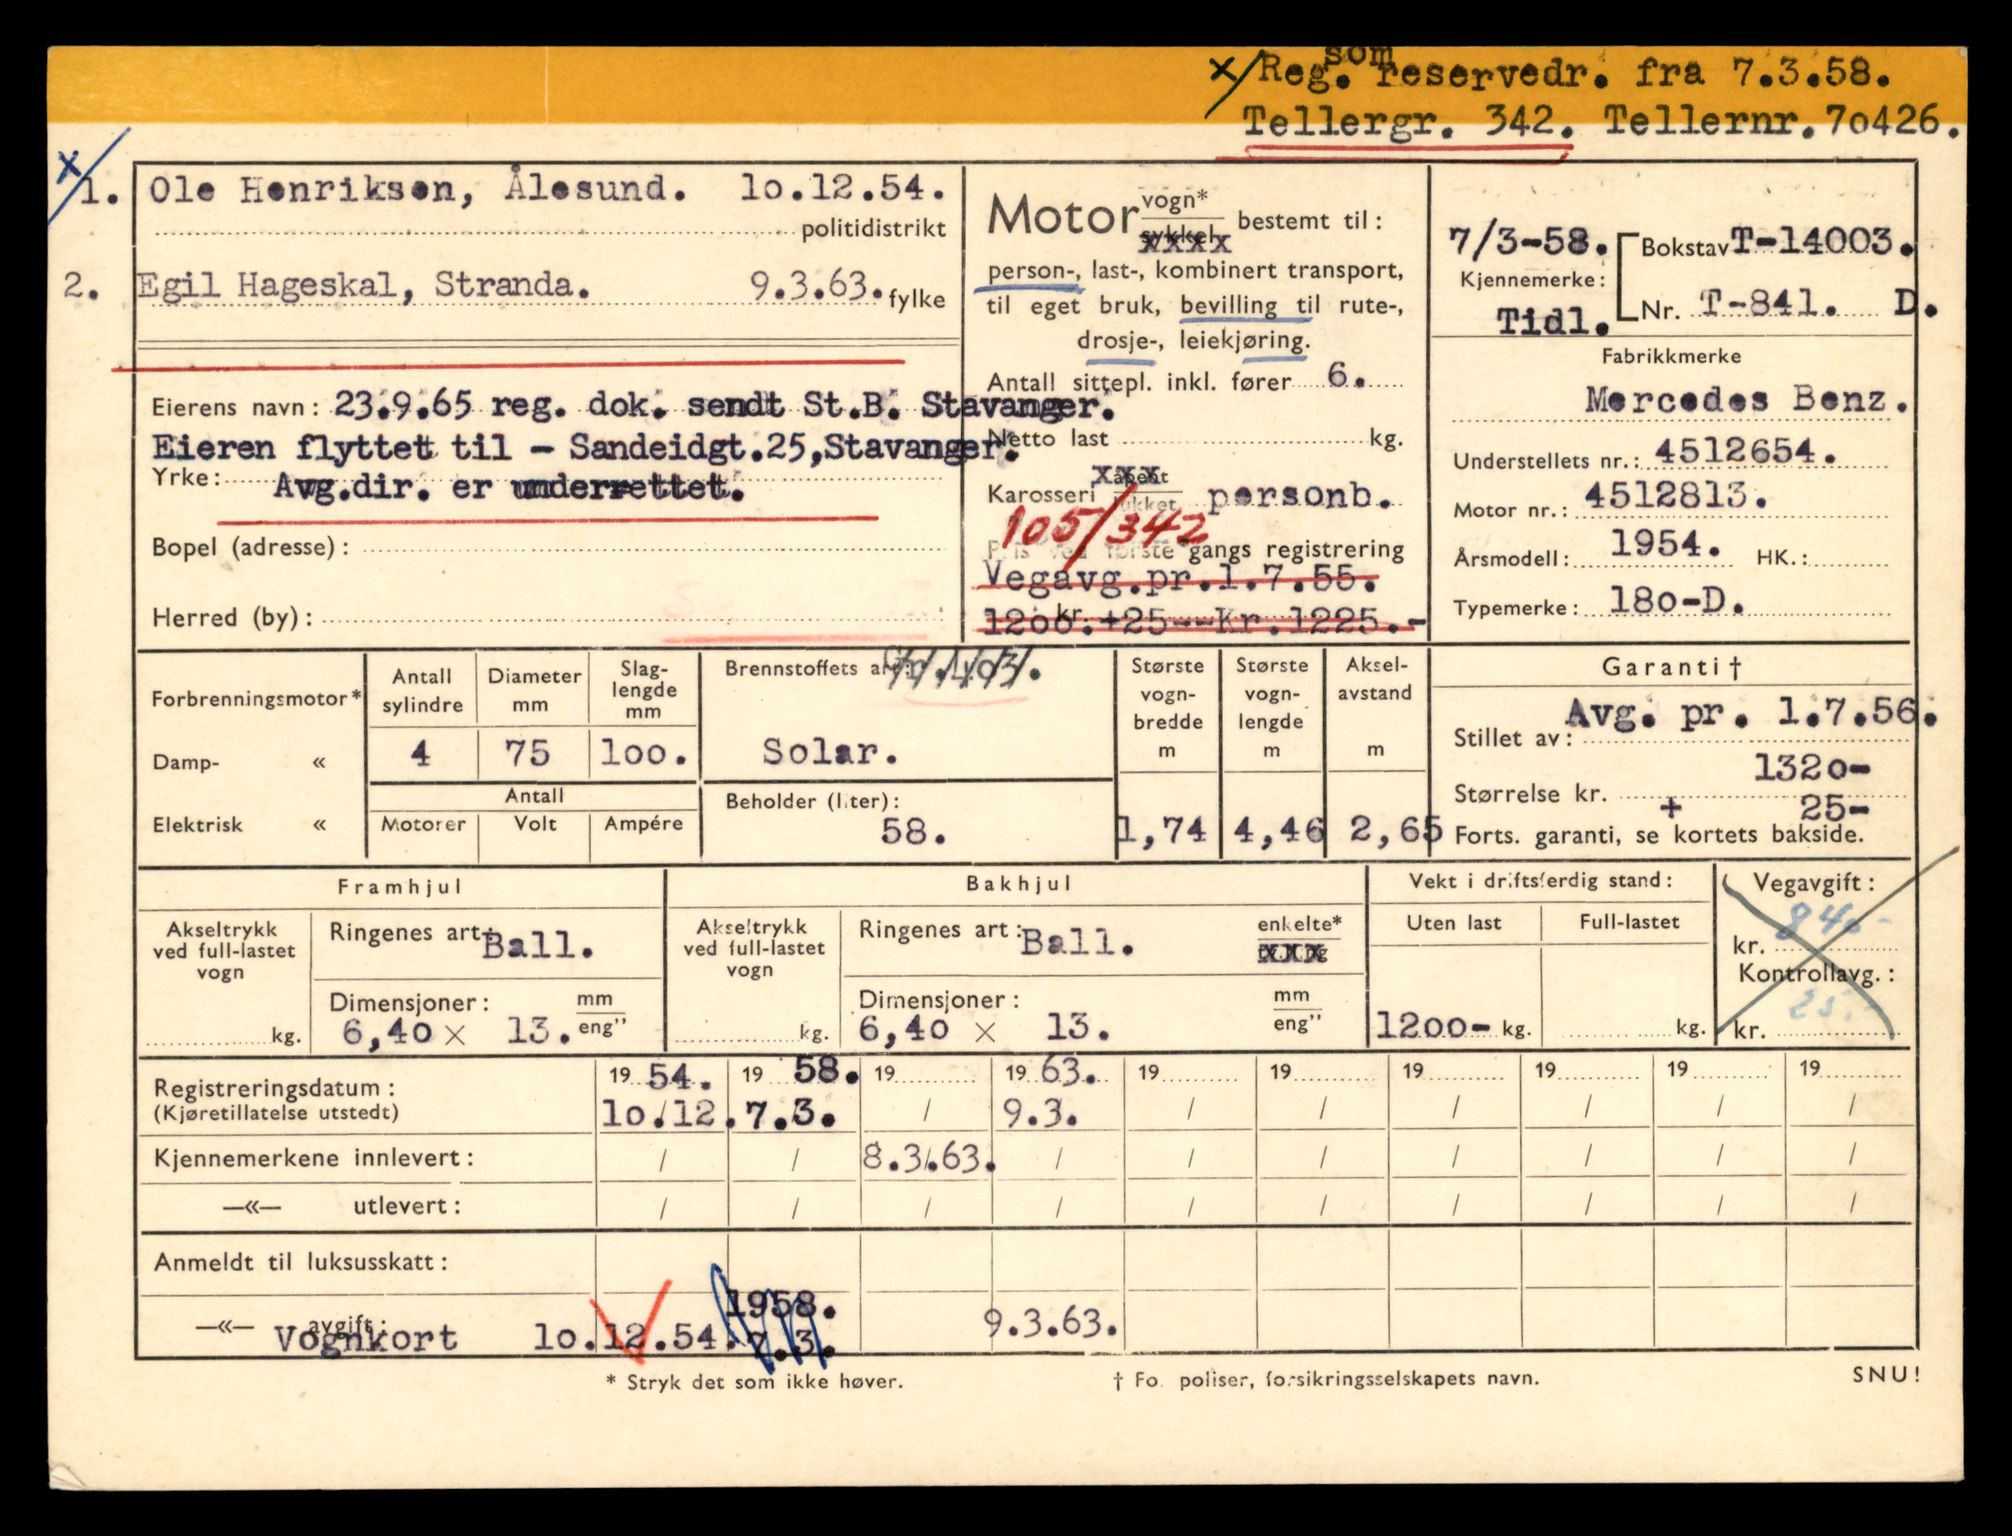 som
x/Reg. reservedr. fra 7.3.58.
Tellergr. 342. Tellernr. 7o426.
x
1. Ole Henriksen, Ålesund. lo.12.54.
politidistrikt
2. Egil Hageskal, Stranda. 9.3.63. fylke
Eierens navn: 23.9.65 reg. dok. sendt St.B. Stavanger.
Eieren flyttet til - Sandeidgt.25, Stavanger.
Yrke: Avg.dir. er underrettet.
Bopel (adresse):
Herred (by):
Motor vogn* bestemt til:
sykkel xxxx
person-, last-, kombinert transport,
til eget bruk, bevilling til rute-,
drosje-, leiekjøring.
Antall sittepl. inkl. fører 6.
Netto last kg.
Karosseri åpent xxx lukket personb.
105/342
Pris ved første gangs registrering
Vegavg.pr.1.7.55.
kr.
12oo.+25--Kr.1225.-
7/3-58. Bokstav T-14003.
Kjennemerke:
Tidl. Nr. T-841. D.
Fabrikkmerke
Mercedes Benz.
Understellets nr.: 4512654.
Motor nr.: 4512813.
Årsmodell: 1954. HK.:
Typemerke: 18o-D.
Forbrenningsmotor*
Damp- «
Elektrisk «
Antall sylindre
4
Diameter mm
75
Slag-lengde mm
loo.
Antall
Motorer Volt Ampére
Brennstoffets art:
Solar.
Beholder (liter):
58.
Største vogn-bredde m
1,74
Største vogn-lengde m
4,46
Aksel-avstand m
2,65
Garanti †
Avg. pr. 1.7.56.
Stillet av:
132o-
Størrelse kr.
+ 25-
Forts. garanti, se kortets bakside.
Framhjul
Akseltrykk ved full-lastet vogn
kg.
Ringenes art: Ball.
Dimensjoner: mm
6,4o x 13. eng"
Bakhjul
Akseltrykk ved full-lastet vogn
kg.
Ringenes art: Ball. enkelte*
xxx
Dimensjoner: mm
6,4o x 13. eng"
Vekt i driftsferdig stand:
Uten last Full-lastet
12oo- kg. kg.
Vegavgift:
kr. 840-
Kontrollavg.:
kr. 25.-
Registreringsdatum: 19 54. 19 58. 19 19 63. 19 19 19 19 19 19
(Kjøretillatelse utstedt) lo./12. 7.3. / 9.3. / / / / / /
Kjennemerkene innlevert: / / 8.3/.63. / / / / / / /
—«— utlevert: / / / / / / / / / /
Anmeldt til luksusskatt:
1958.
—«— avgift:
Vognkort lo.12.54. 7.3. 9.3.63.
* Stryk det som ikke høver.
† For poliser, forsikringsselskapets navn.
SNU!